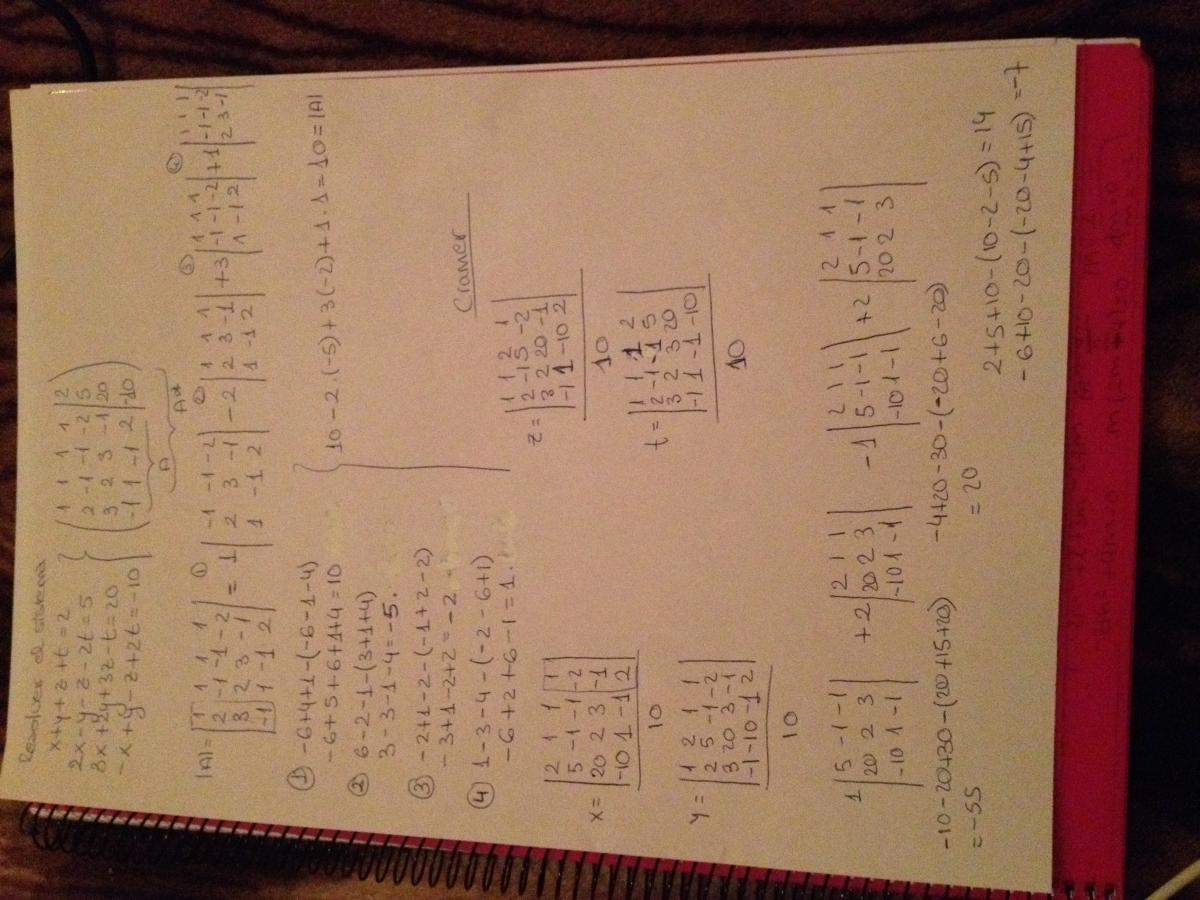 Resolver el sistema
x+y+z+t=2
2x-y-z-2t=5
3x+2y+3z-t=20
-x+y-z+2t=-10
1 1 1 1 | 2
2 -1 -1 -2 | 5
3 2 3 -1 | 20
-1 1 -1 2 | -10
A
A*
|A| = |1 1 1 1; 2 -1 -1 -2; 3 2 3 -1; -1 1 -1 2| = ① 1 |-1 -1 -2; 2 3 -1; 1 -1 2| ② -2 |1 1 1; 2 3 -1; 1 -1 2| ③ +3 |1 1 1; -1 -1 -2; 1 -1 2| ④ +1 |1 1 1; -1 -1 -2; 2 3 -1|
① -6+4+1-(-6-1-4)
-6+5+6+1+4=10
② 6-2-1-(3+1+4)
3-3-1-4=-5.
③ -2+1-2-(-1+2-2)
-3+1-2+2=-2
④ 1-3-4-(-2-6+1)
-6+2+6-1=1.
10-2·(-5)+3(-2)+1·1=10=|A|
Cramer
x = |2 1 1 1; 5 -1 -1 -2; 20 2 3 -1; -10 1 -1 2| / 10
y = |1 2 1 1; 2 5 -1 -2; 3 20 3 -1; -1 -10 -1 2| / 10
z = |1 1 2 1; 2 -1 5 -2; 3 2 20 -1; -1 1 -10 2| / 10
t = |1 1 1 2; 2 -1 -1 5; 3 2 3 20; -1 1 -1 -10| / 10
1 |5 -1 -1; 20 2 3; -10 1 -1| +2 |2 1 1; 20 2 3; -10 1 -1| -1 |2 1 1; 5 -1 -1; -10 1 -1| +2 |2 1 1; 5 -1 -1; 20 2 3|
-10-20+30-(20+15+20)
=-55
-4+20-30-(-20+6-20)
=20
2+5+10-(10-2-5)=14
-6+10-20-(-20-4+15)=-7